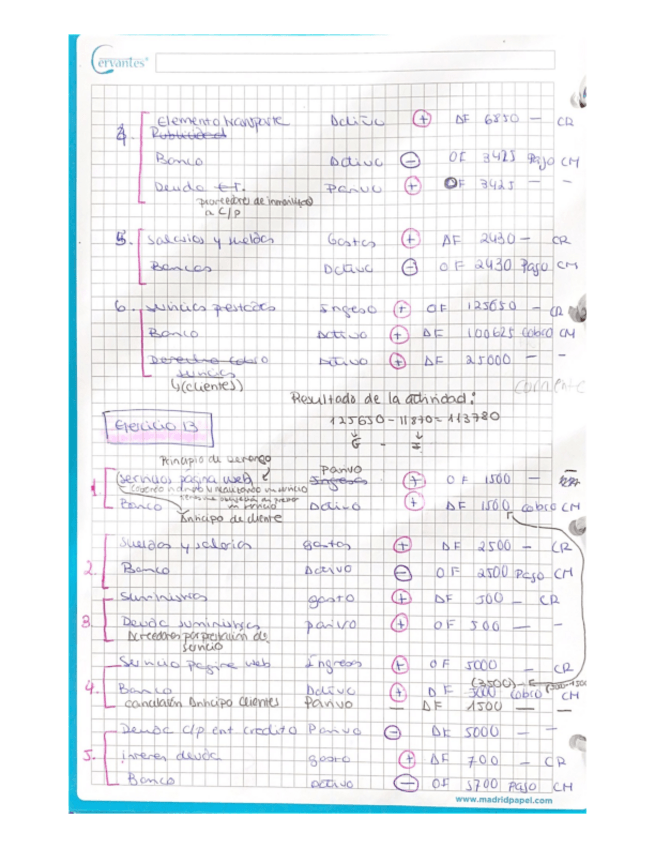 Cervantes
4. Elemento transporte Activo + AF 6850 - CR
Publicidad
Banco Activo - OF 3425 Pago CM
Deuda Pasivo + OF 3425 - -
proveedores de inmovilizado
a C/P
5. Salarios y sueldos Gastos + AF 2430 - CR
Bancos Activo - OF 2430 Pago CM
6. servicios prestados Ingreso + OF 125650 - CR
Banco Activo + AF 100625 cobro CM
Derecho cobro Activo + AF 25000 - -
servicios
(clientes)
corriente
Resultado de la actividad:
125650 - 11870 = 113780
G - I
Ejercicio 13
Principio de devengo
1. Servicios pagina web Ingreso Pasivo + OF 1500 -
Banco Activo + AF 1500 cobro CM
Anticipo de cliente
Sueldos y salarios gastos + AF 2500 - CR
2. Banco Activo - OF 2500 Pago CM
Suministros gasto + AF 500 - CR
3. Deuda suministros pasivo + OF 500 - -
Acreedores por prestación de
servicio
Servicio Pagina web Ingresos + OF 5000 - CR
(3500)
4. Banco Activo + AF 5000 cobro CM
cancelación Anticipo Clientes Pasivo - AF 1500 - -
Deuda c/p ent credito Pasivo - AF 5000 - -
5. interes deuda gasto + AF 700 - CR
Banco activo - OF 5700 pago CM
www.madridpapel.com